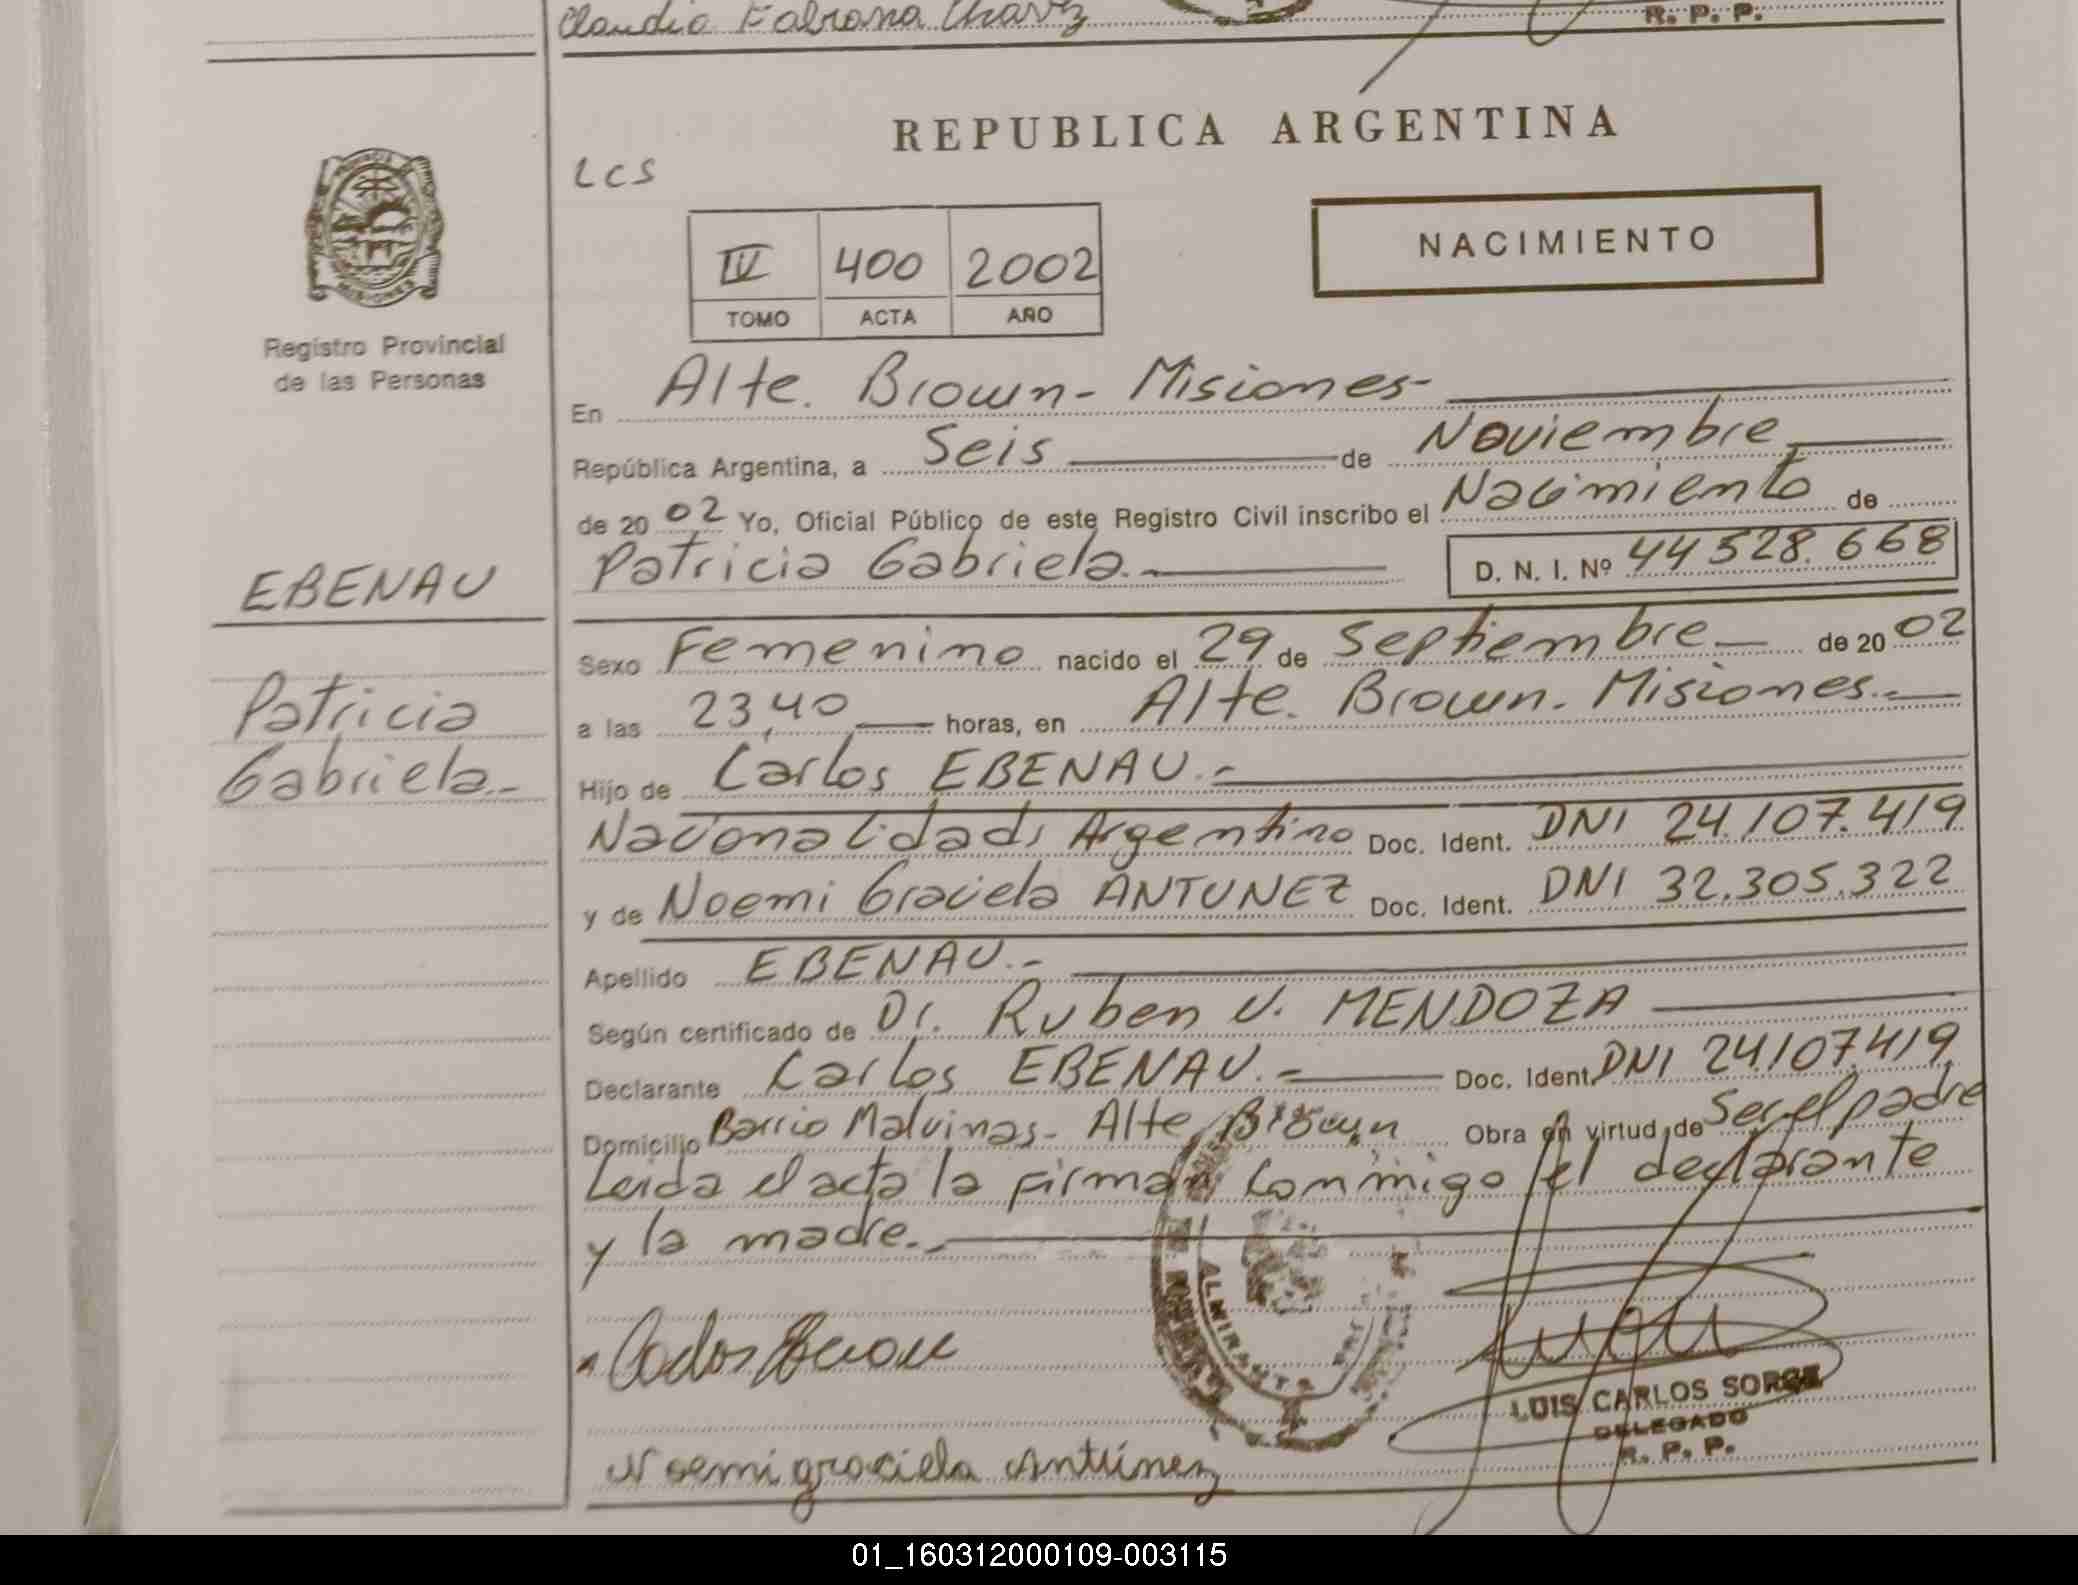 Claudia Fabiana Chavez
R. P. P.
REPUBLICA ARGENTINA
LCS
NACIMIENTO
IV 400 2002
TOMO ACTA AÑO
PROVINCIA
MISIONES
Registro Provincial
de las Personas
En Alte. Brown - Misiones -
República Argentina, a Seis de Noviembre
de 2002 Yo, Oficial Público de este Registro Civil inscribo el Nacimiento de
Patricia Gabriela.- D. N. I. Nº 44 528.668
EBENAU
Patricia
Gabriela.-
Sexo Femenino nacido el 29 de Septiembre de 2002
a las 23,40 horas, en Alte. Brown - Misiones.-
Hijo de Carlos EBENAU.-
Nacionalidad, Argentino Doc. Ident. DNI 24.107.419
y de Noemi Graciela ANTUNEZ Doc. Ident. DNI 32.305.322
Apellido EBENAU.-
Según certificado de Dr. Ruben V. MENDOZA
Declarante Carlos EBENAU.- Doc. Ident. DNI 24.107.419
Domicilio Barrio Malvinas - Alte Brown Obra en virtud de Ser el padre
Leida el acta la firman conmigo el declarante
y la madre.-
ALMIRANTE
Carlos Ebenau
LUIS CARLOS SORGE
DELEGADO
R. P. P.
Noemi graciela Antúnez
01_160312000109-003115